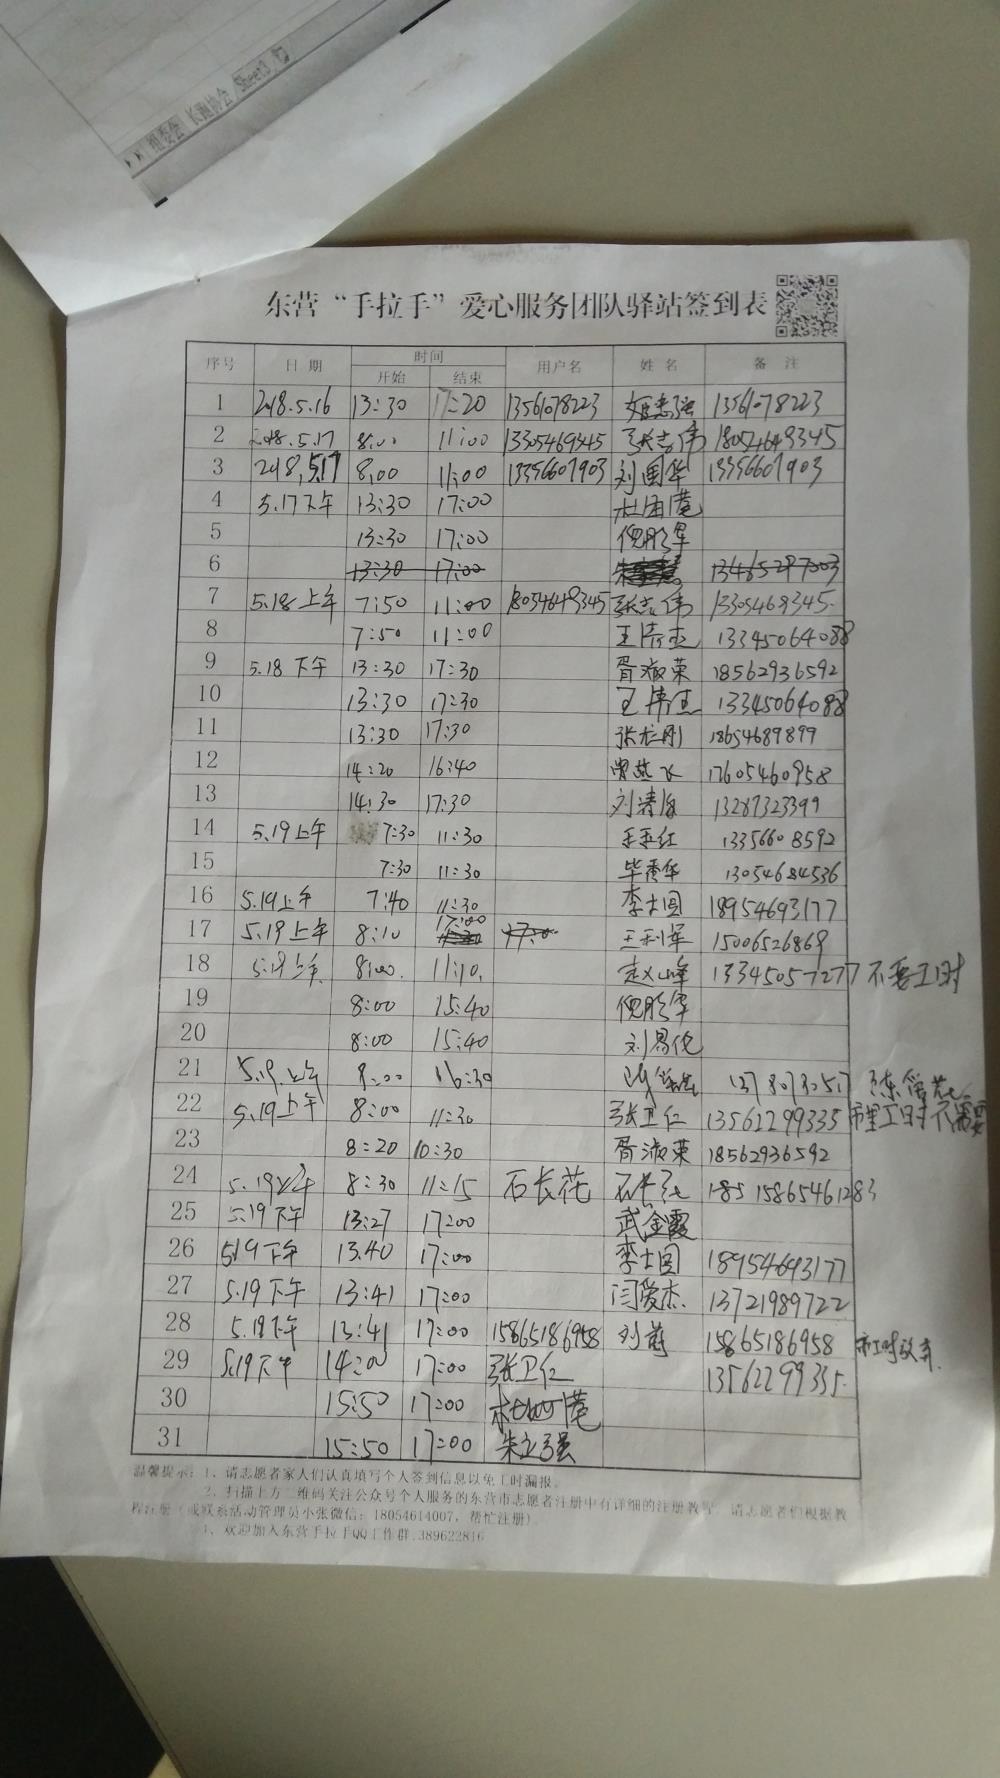 组委会 长跑协会 Sheet3
东营“手拉手”爱心服务团队驿站签到表
序号 日期 时间 用户名 姓名 备注
开始 结束
1 2018.5.16 13:30 17:20 13561078223 13561078223
2 2018.5.17 8:00 11:00 13305469345 张志伟 18054649345
3 2018,5.17 8,00 11:00 13356607903 刘国华 13356607903
4 5.17下午 13:30 17:00
5 13:30 17:00 倪彤军
6 13:30 17:00 13465297003
7 5.18上午 7:50 11:00 18054649345 张志伟 13305469345
8 7:50 11:00 13345064088
9 5.18下午 13:30 17:30 胥淑荣 18562936592
10 13:30 17:30 13345064088
11 13:30 17:30 18654689899
12 14:20 16:40 17605460958
13 14:30 17:30 刘清海 13287323399
14 5.19上午 7:30 11:30 王玉红 13356608592
15 7:30 11:30 毕秀华 13054684536
16 5.19上午 7:40 11:30 李士圆 18954693177
17 5.19上午 8:10 17:00 王利军 15006526869
18 5.19上午 8:00 11:10 赵山峰 13345057277 不要工时
19 8:00 15:40 倪彤军
20 8:00 15:40 刘易伦
21 5.19上午 16:30 13780730517
22 5.19上午 8:00 11:30 张卫仁 13562299335 市里工时不需要
23 8:20 10:30 胥淑荣 18562936592
24 5.19上午 8:30 11:15 石长花 石长花 15865461283
25 5.19下午 13:27 17:00 武金霞
26 5.19下午 13.40 17:00 李士圆 18954693177
27 5.19下午 13:41 17:00 闫爱杰 13721989722
28 5.19下午 13:41 17:00 15865186958 刘蔚 15865186958
29 5.19下午 14:00 17:00 张卫仁 13562299335
30 15:50 17:00
31 15:50 17:00 朱立强
温馨提示：1、请志愿者家人们认真填写个人签到信息以免工时漏报。
2、扫描上方二维码关注公众号个人服务的东营市志愿者注册中有详细的注册教程，请志愿者们根据教
程注册（或联系活动管理员小张微信：18054614007，帮忙注册）。
欢迎加入东营手拉手QQ工作群.389622816